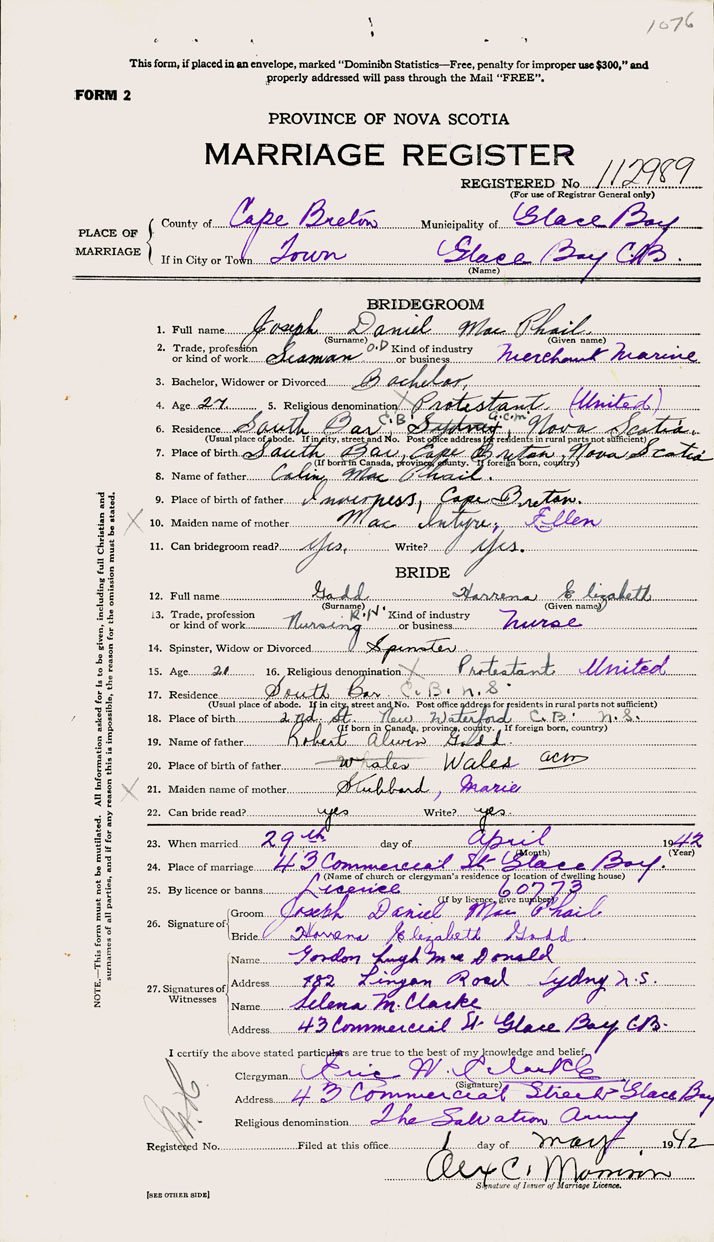 1076
This form, if placed in an envelope, marked "Dominion Statistics—Free, penalty for improper use $300," and
properly addressed will pass through the Mail "FREE".
FORM 2
PROVINCE OF NOVA SCOTIA
MARRIAGE REGISTER
REGISTERED No. 112989
(For use of Registrar General only)
PLACE OF MARRIAGE
County of Cape Breton Municipality of Glace Bay
If in City or Town Town Glace Bay C.B.
(Name)
BRIDEGROOM
1. Full name Joseph Daniel Mac Phail
(Surname) (Given name)
2. Trade, profession or kind of work Seaman O.D Kind of industry or business Merchant Marine
3. Bachelor, Widower or Divorced Bachelor,
4. Age 27. 5. Religious denomination X Protestant (United)
6. Residence South Bar, C.B. Sydney, G.C.M. Nova Scotia.
(Usual place of abode. If in city, street and No. Post office address for residents in rural parts not sufficient)
7. Place of birth South Bar, Cape Breton, Nova Scotia
(If born in Canada, province, county. If foreign born, country)
8. Name of father Colin Mac Phail.
9. Place of birth of father Inverness, Cape Breton.
X 10. Maiden name of mother Mac Intyre, Ellen
11. Can bridegroom read? yes, Write? yes.
BRIDE
12. Full name Gadd Harrena Elizabeth
(Surname) (Given name)
13. Trade, profession or kind of work Nursing R.N. Kind of industry or business nurse
14. Spinster, Widow or Divorced Spinster
15. Age 21 16. Religious denomination X Protestant United
17. Residence South Bar C.B. N.S.
(Usual place of abode. If in city, street and No. Post office address for residents in rural parts not sufficient)
18. Place of birth 2nd. St. New Waterford C.B. N.S.
(If born in Canada, province, county. If foreign born, country)
19. Name of father Robert Alwin Gadd.
20. Place of birth of father Whales Wales acm
X 21. Maiden name of mother Stubbard, Marie
22. Can bride read? yes Write? yes.
23. When married 29th day of April 1942
(Month) (Year)
24. Place of marriage 43 Commercial St Glace Bay.
(Name of church or clergyman's residence or location of dwelling house)
25. By licence or banns Licence 60773
(If by licence, give number)
26. Signature of
Groom Joseph Daniel Mac Phail
Bride Harrena Elizabeth Gadd
27. Signatures of Witnesses
Name Gordon Hugh Mac Donald
Address 182 Lingan Road Sydney N.S.
Name Selena M. Clarke
Address 43 Commercial St. Glace Bay C.B.
I certify the above stated particulars are true to the best of my knowledge and belief.
Clergyman Eric W. Clarke
(Signature)
Address 43 Commercial Street Glace Bay
Religious denomination The Salvation Army
Registered No. Filed at this office 1 day of May 1942
Alex C. Morrison
Signature of Issuer of Marriage Licence.
[SEE OTHER SIDE]
NOTE.—This form must not be mutilated. All Information asked for is to be given, including full Christian and
surnames of all parties, and if for any reason this is impossible, the reason for the omission must be stated.